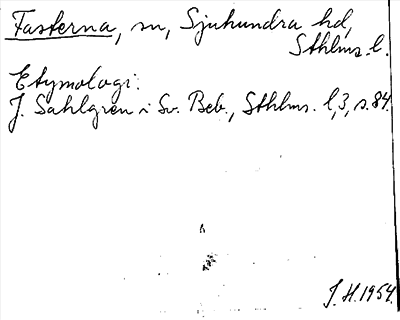 Fasterna, sn, Sjuhundra hd,
Sthlms. l.
Etymologi:
J. Sahlgren i Sv. Beb., Sthlms. l, 3, s. 84.
J. H. 1954.